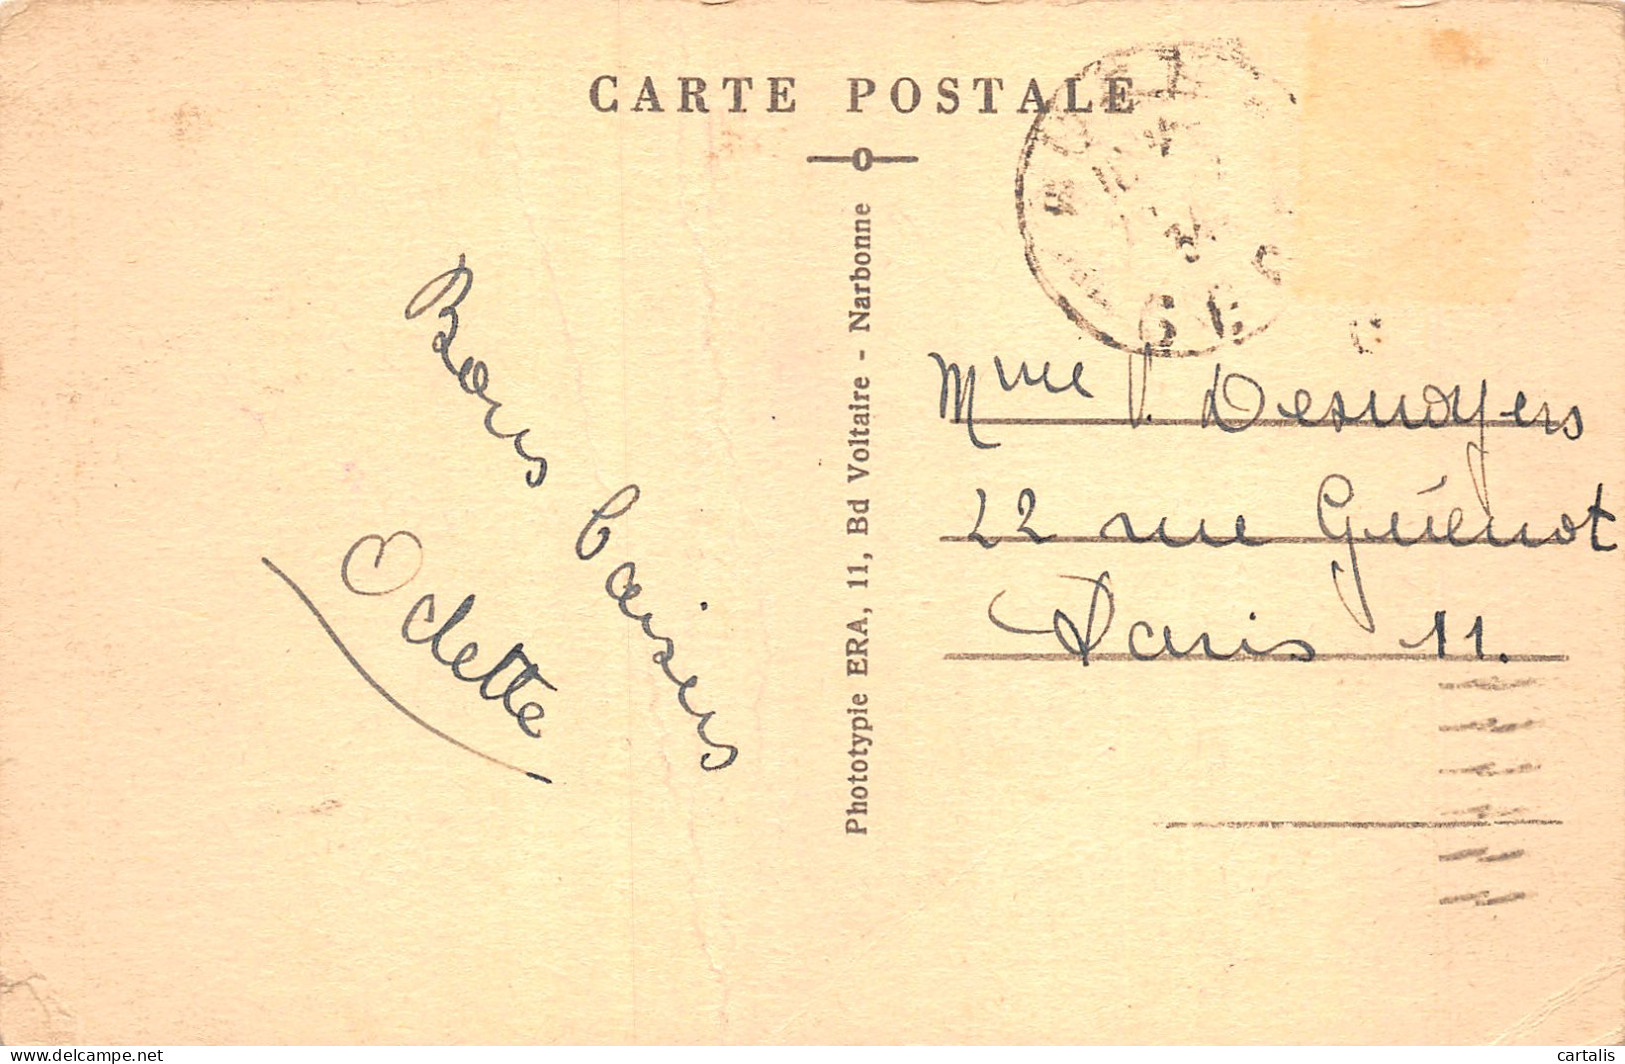 CARTE POSTALE
Bons baisers
Odette
Phototypie ERA, 11, Bd Voltaire - Narbonne
Mme V. Desnoyers
22 rue Guénot
Paris 11.
cartalis
delcampe.net